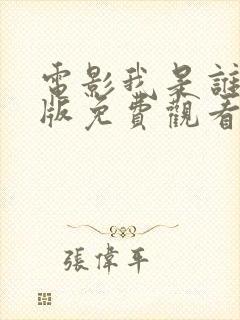 電影我是誰
版免費觀看
張偉平